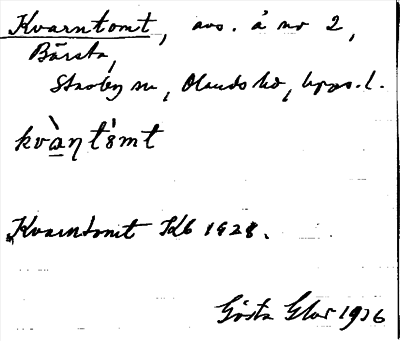 Kvarntomt, avs. å nr 2,
Bärsta,
Stavby sn, Olands hd, Upps. l.
kvàṇtómt
Kvarntomt Jdb 1928.
Gösta Glar 1936